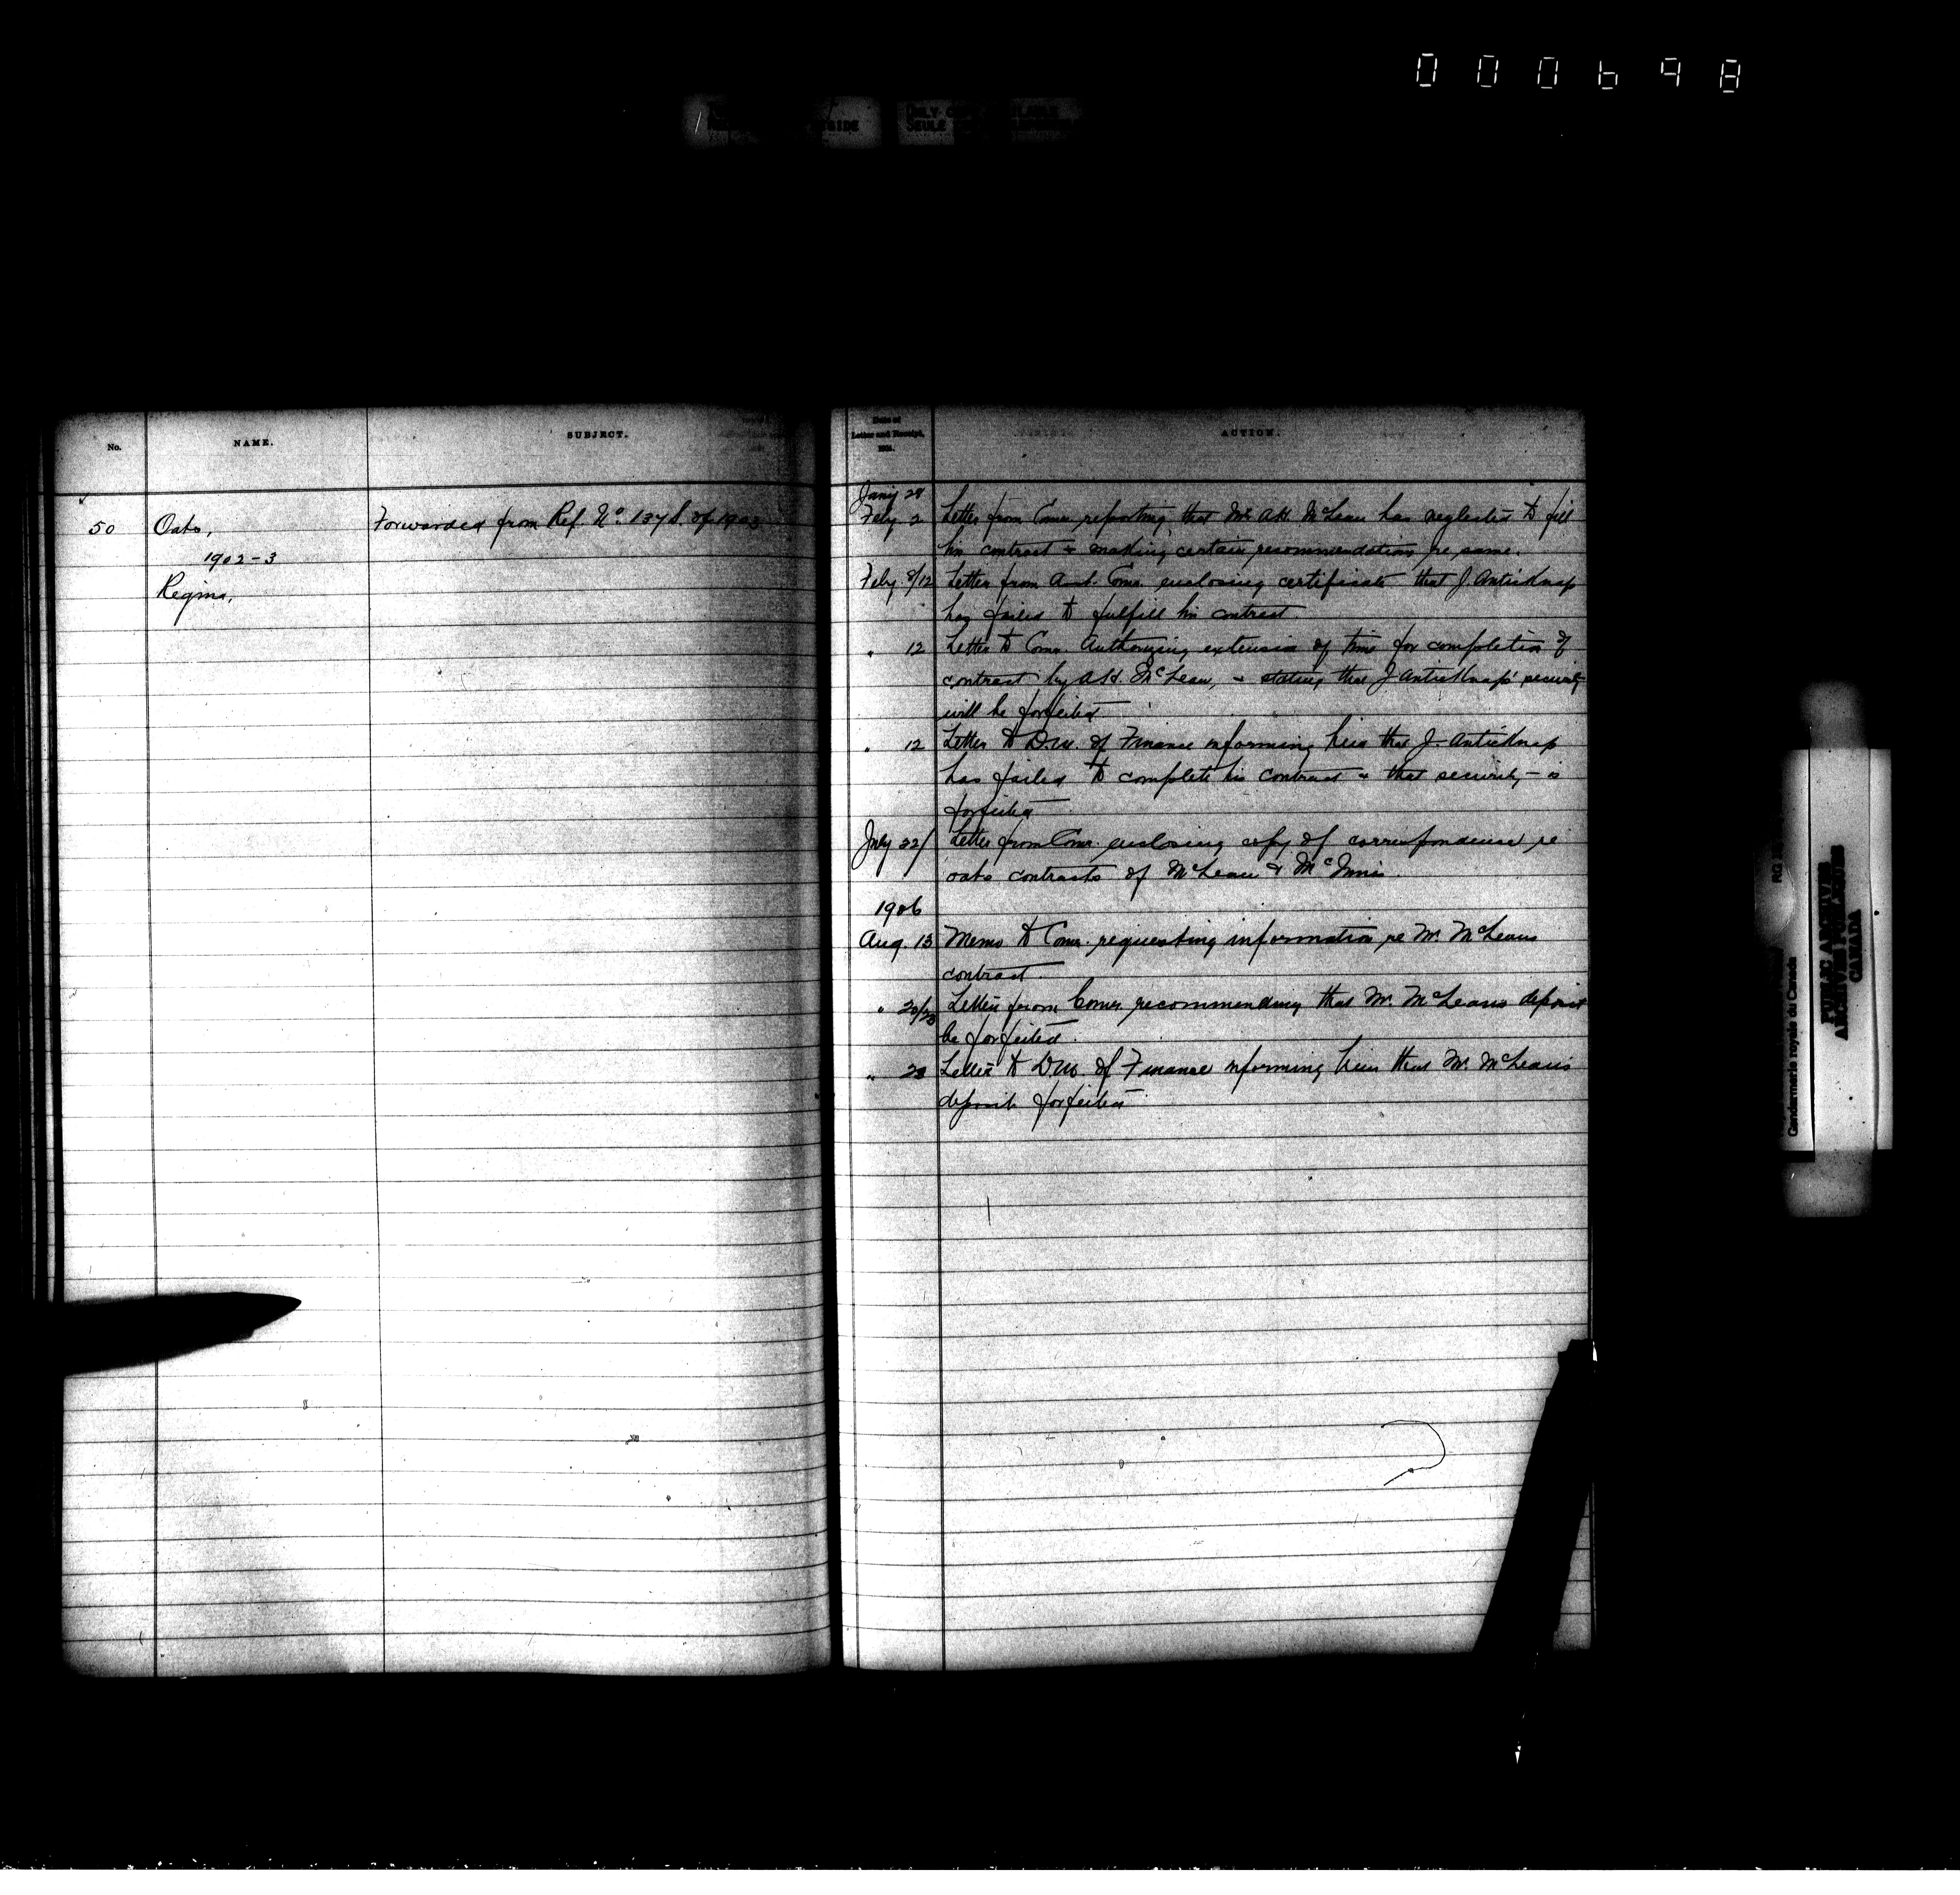 000698
No.
NAME.
SUBJECT.
50
Oats,
1902-3
Regina,
Forwarded from Ref. No. 137 S. of 1903.
Date of
Letter and Receipt,
ACTION.
Jany 29
Feby 2 Letter from Comr. reporting that Mr. A.H. McLean has neglected to fill
his contract & making certain recommendations re same.
Feby 8/12 Letter from Asst. Comr. enclosing certificate that J. Anticknap
has failed to fulfill his contract.
" 12 Letter to Comr. Authorizing extension of time for completion of
contract by A.H. McLean, & stating that J Anticknap' security
will be forfeited
" 12 Letter to D.M. of Finance informing him that J. Anticknap
has failed to complete his contract & that security is
forfeited
July 22/ Letter from Comr. enclosing copy of correspondence re
oats contracts of McLean & McInnis.
1906
Aug. 13 Memo to Comr. requesting information re Mr. McLeans
contract.
" 20/23 Letter from Comr. recommending that Mr. McLeans deposit
be forfeited.
" 23 Letter to D.M. of Finance informing him that Mr. McLean's
deposit forfeited
Gendarmerie royale du Canada
PUBLIC ARCHIVES
ARCHIVES PUBLIQUES
CANADA